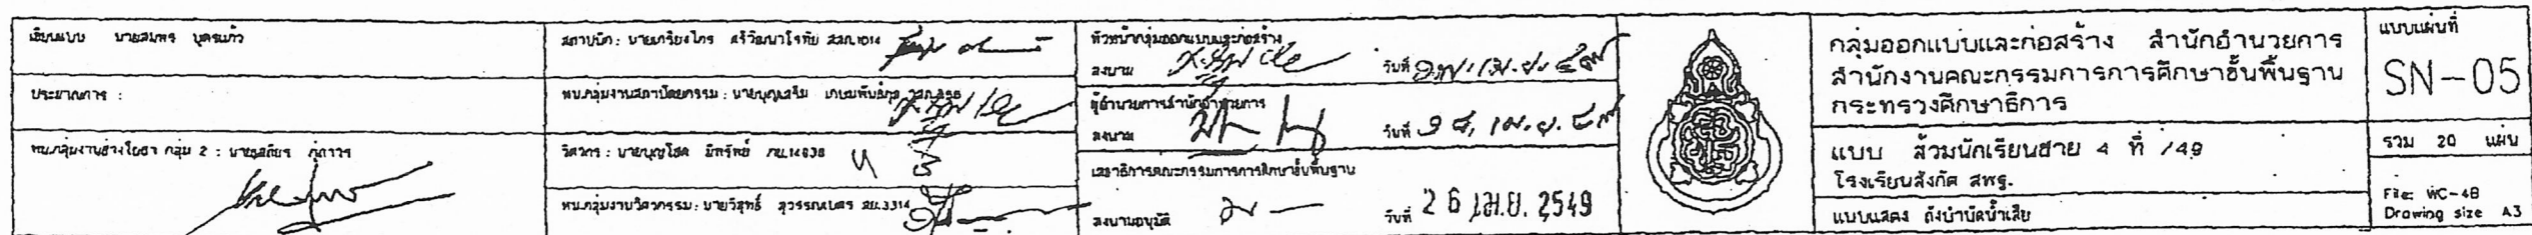 เขียนแบบ นายสมพร บุตรแก้ว
ประมาณการ :
หน.กลุ่มงานช่างโยธา กลุ่ม 2 : นายเสถียร
สถาปนิก : นายเกรียงไกร ศรีวัฒนาโรทัย สสถ.1014
หน.กลุ่มงานสถาปัตยกรรม : นายบุญเสริม
วิศวกร : นายบุญโชค มีทรัพย์ ภย.14838
หน.กลุ่มงานวิศวกรรม : นายวิสุทธิ์ สุวรรณเนตร สย.3314
หัวหน้ากลุ่มออกแบบและก่อสร้าง
ลงนาม วันที่
ผู้อำนวยการสำนักอำนวยการ
ลงนาม วันที่
เลขาธิการคณะกรรมการการศึกษาขั้นพื้นฐาน
ลงนามอนุมัติ วันที่ 26 เม.ย. 2549
กลุ่มออกแบบและก่อสร้าง สำนักอำนวยการ
สำนักงานคณะกรรมการการศึกษาขั้นพื้นฐาน
กระทรวงศึกษาธิการ
แบบ ส้วมนักเรียนชาย 4 ที่ /49
โรงเรียนสังกัด สพฐ.
แบบแสดง ถังบำบัดน้ำเสีย
แบบแผ่นที่
SN-05
รวม 20 แผ่น
File: WC-4B
Drawing size A3